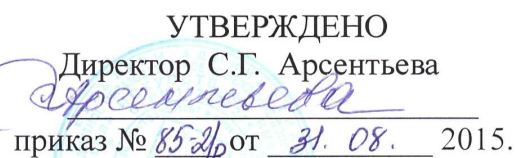 УТВЕРЖДЕНО
Директор С.Г. Арсентьева
Арсентьева
приказ № 85-2/р от 31. 08. 2015.